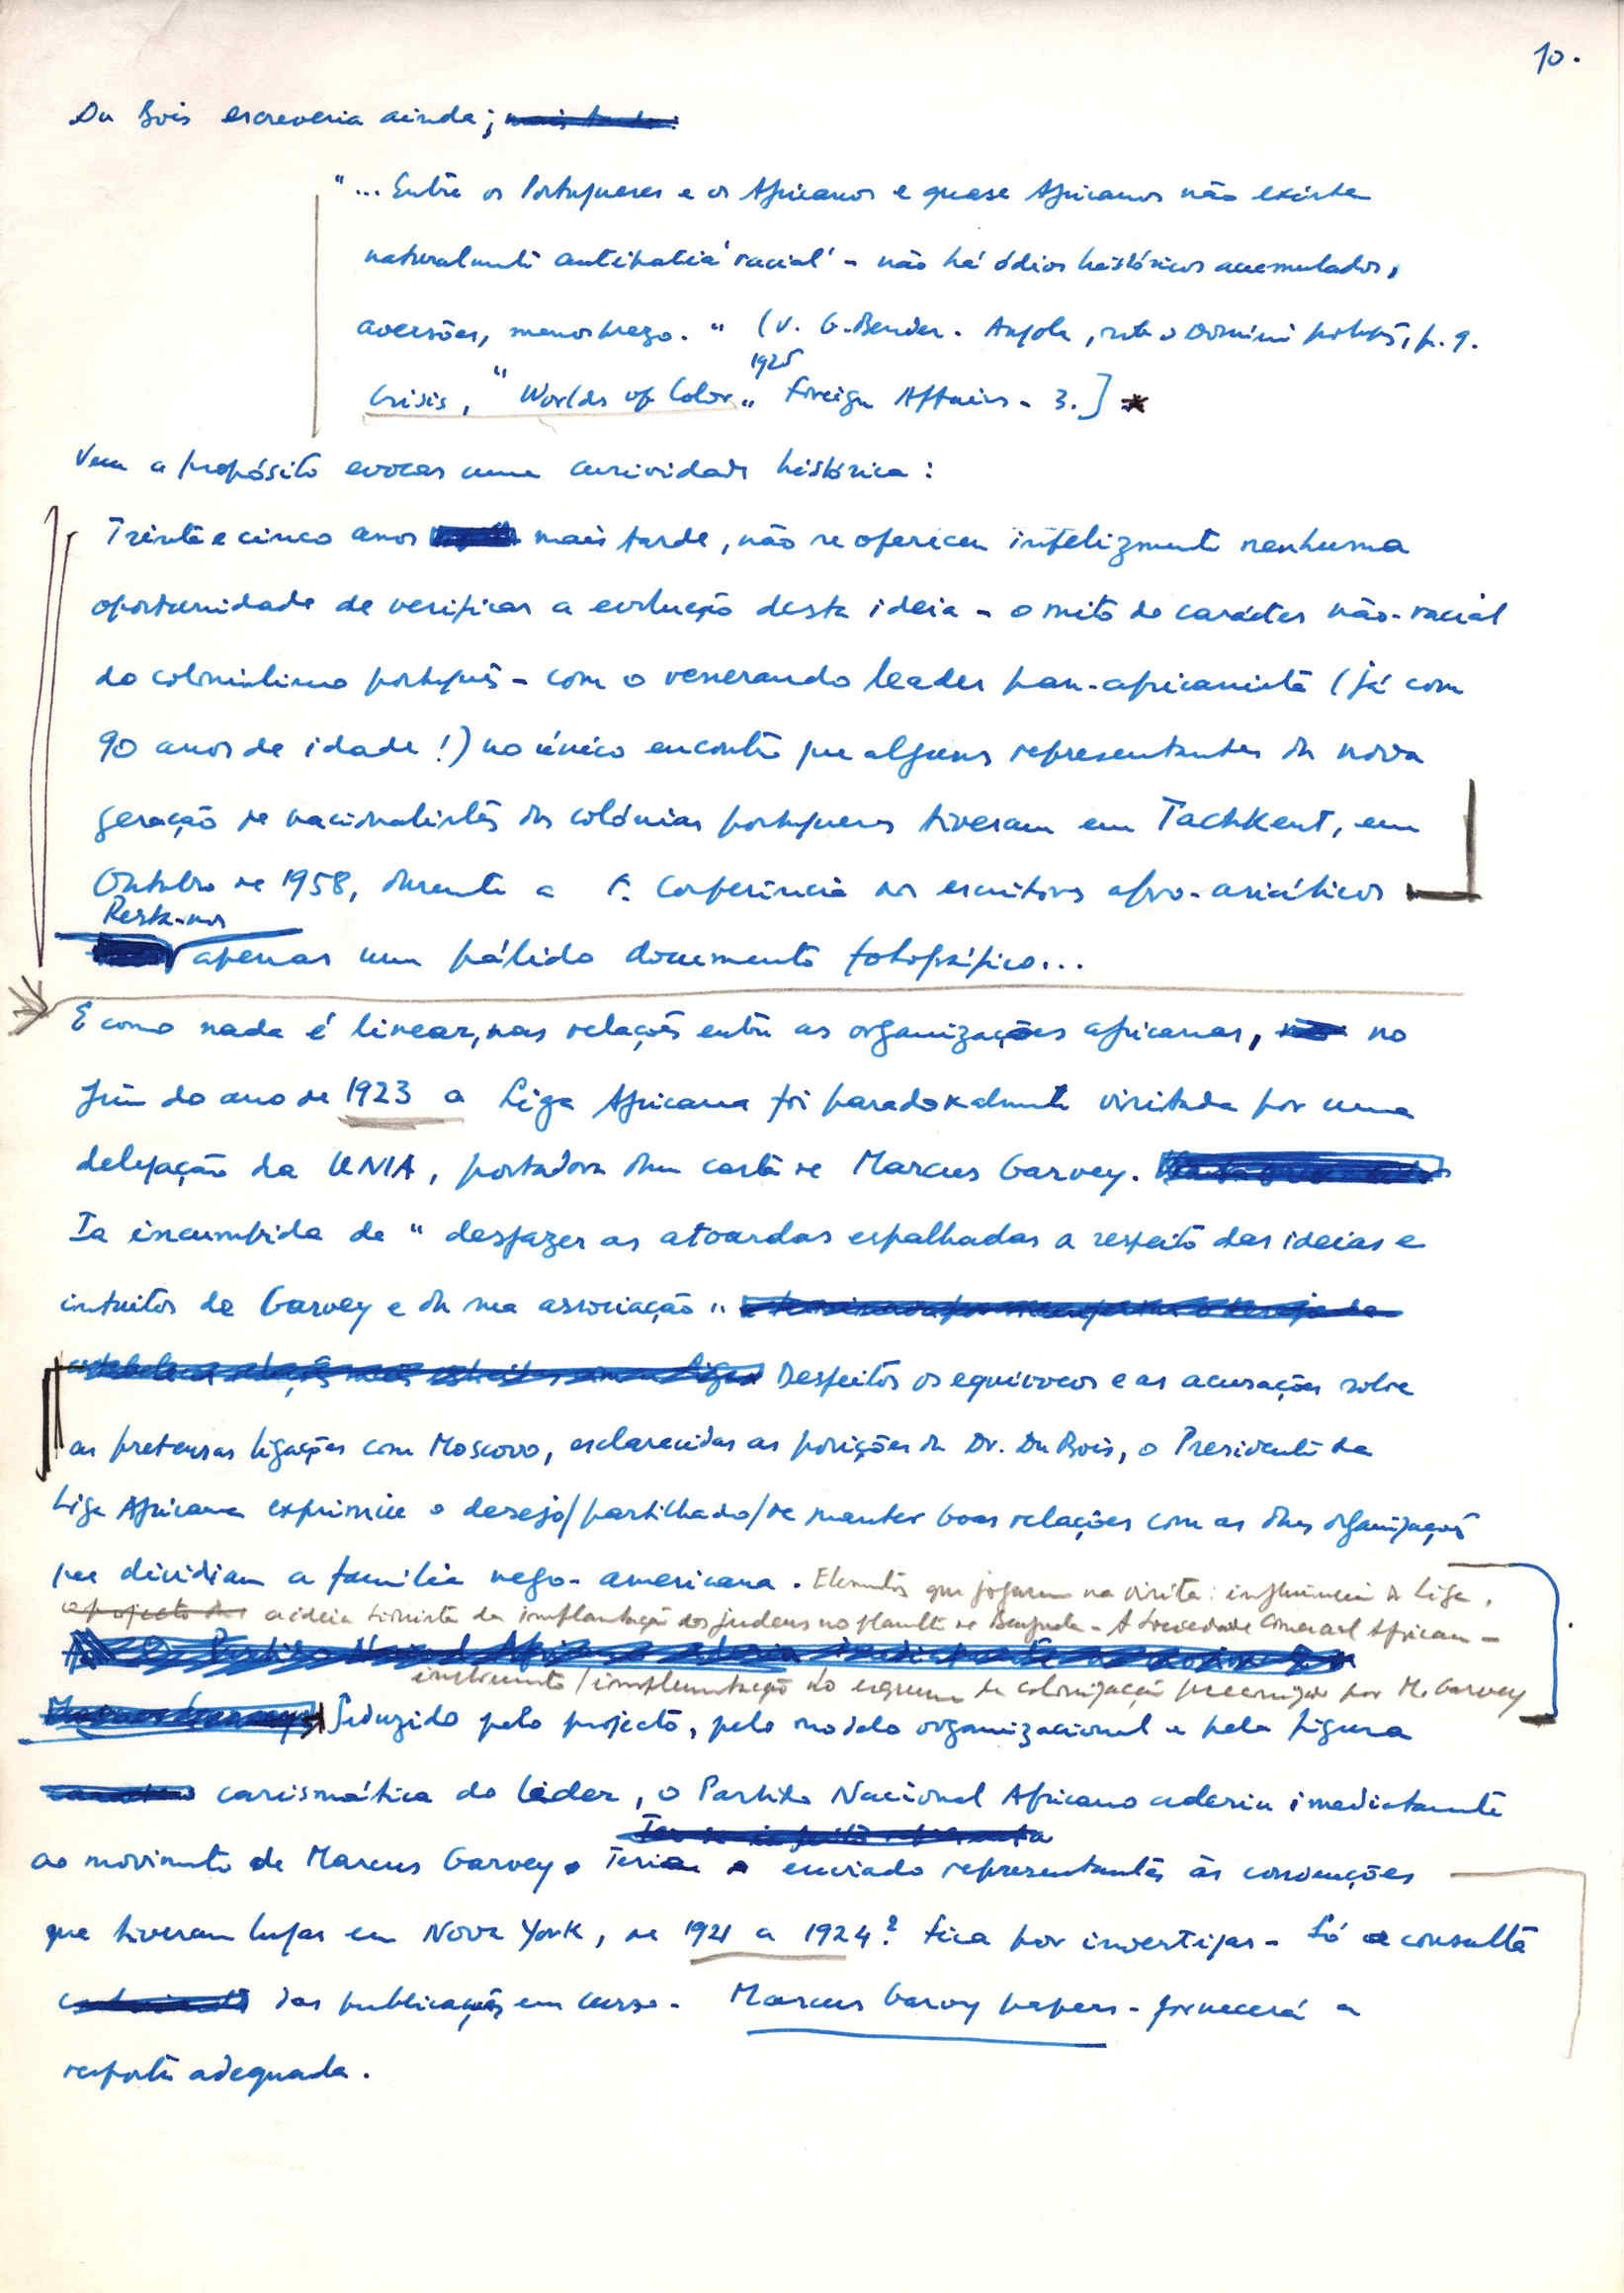 10.
Du Bois escreveria ainda;
"... Entre os Portugueses e os Africanos e quase Africanos não existe
naturalmente antipatia 'racial' - não há ódios históricos acumulados,
aversões, menosprezo. " (V. G. Bender. Angola, sob o Domínio português, p. 9.
1925
Crisis, "Worlds of Color" Foreign Affairs - 3.]
Vem a propósito evocar uma curiosidade histórica:
Trinta e cinco anos mais tarde, não se ofereceu infelizmente nenhuma
oportunidade de verificar a evolução desta ideia - o mito do carácter não-racial
do colonialismo português - com o venerando leader pan-africanista (já com
90 anos de idade!) no único encontro que alguns representantes da nova
geração de nacionalistas das colónias portuguesas tiveram em Tachkent, em
Outubro de 1958, durante a 1ª. Conferência dos escritores afro-asiáticos
Resta-nos
apenas um pálido documento fotográfico...
E como nada é linear, nas relações entre as organizações africanas, no
fim do ano de 1923 a Liga Africana foi paradoxalmente visitada por uma
delegação da UNIA, portadora duma carta de Marcus Garvey.
Ia incumbida de "desfazer as atoardas espalhadas a respeito das ideias e
intuitos de Garvey e da sua associação"
Desfeitos os equívocos e as acusações sobre
as pretensas ligações com Moscovo, esclarecidas as posições do Dr. Du Bois, o Presidente da
Liga Africana exprimiu o desejo/partilhado/de manter boas relações com as duas organizações
que dividiam a família negro-americana. Elementos que jogaram na visita: influência da Liga,
a ideia sionista da implantação dos judeus no planalto de Benguela - A Sociedade Comercial Africana -
instrumento/implementação do esquema de colonização preconizado por M. Garvey
Seduzido pelo projecto, pelo modelo organizacional e pela figura
carismática do lider, o Partido Nacional Africano aderiu imediatamente
ao movimento de Marcus Garvey. Teria enviado representantes às convenções
que tiveram lugar em Nova York, de 1921 a 1924? Fica por investigar - Só a consulta
das publicações em curso - Marcus Garvey papers - fornecerá a
resposta adequada.